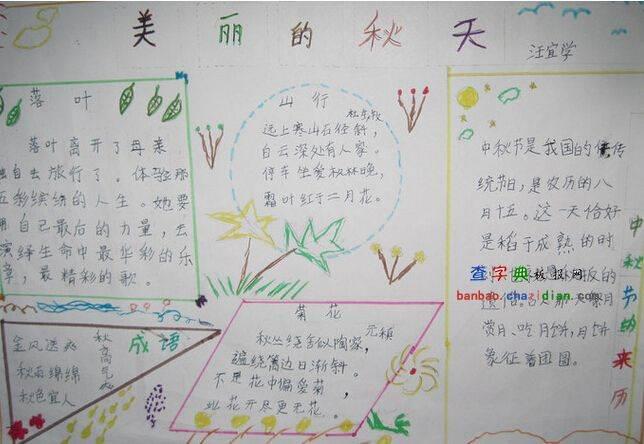 美丽的秋天
汪宜学
落叶
落叶离开了母亲
独自去旅行了。体验那
五彩缤纷的人生。她要
用自己最后的力量，去
演绎生命中最华彩的乐
章，最精彩的歌。
山行
杜牧
远上寒山石径斜，
白云深处有人家。
停车坐爱枫林晚，
霜叶红于二月花。
菊花
元稹
秋丛绕舍似陶家，
遍绕篱边日渐斜。
不是花中偏爱菊，
此花开尽更无花。
成语
金风送爽
秋雨绵绵
秋色宜人
秋高气爽
中秋节的来历
中秋节是我国的传
统节日，是农历的八
月十五。这一天恰好
是稻子成熟的时
赏月、吃月饼，月饼
象征着团圆。
查字典板报网
banbao.chazidian.com